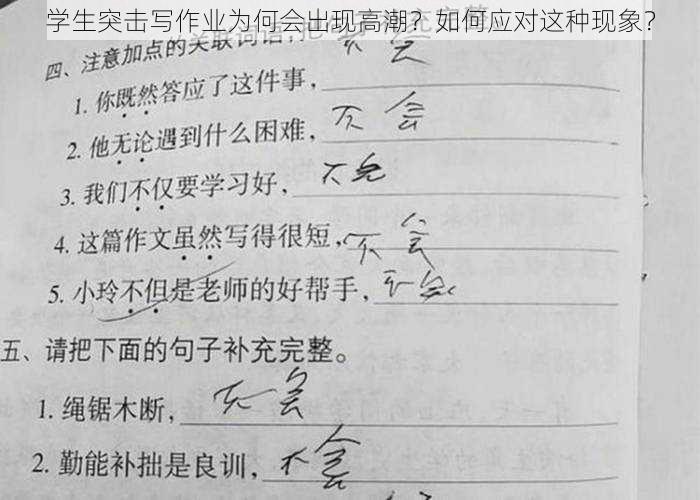 学生突击写作业为何会出现高潮？如何应对这种现象？
四、注意加点的关联词语，把 充完整
不会
1. 你既然答应了这件事，
2. 他无论遇到什么困难，不会
3. 我们不仅要学习好，不会
4. 这篇作文虽然写得很短，不会
5. 小玲不但是老师的好帮手，不会
五、请把下面的句子补充完整。
1. 绳锯木断，不会
2. 勤能补拙是良训，不会